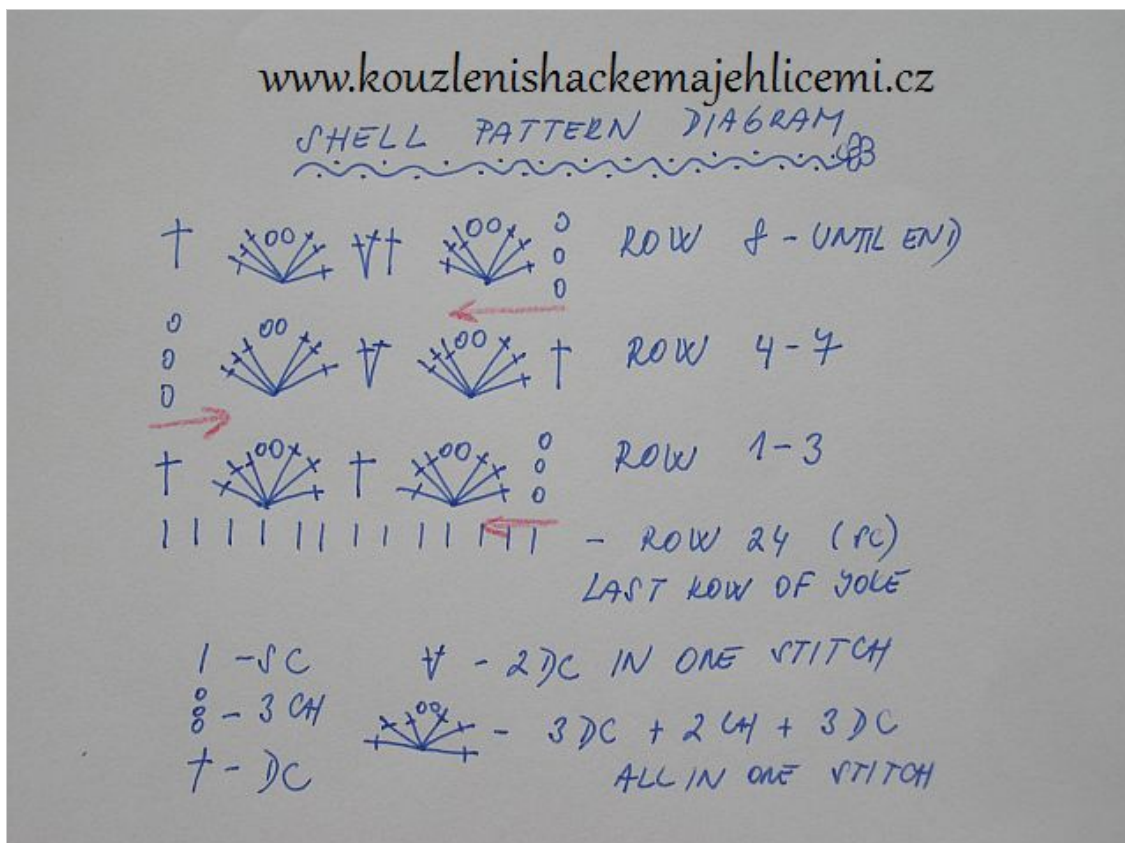 www.kouzlenishackemajehlicemi.cz
SHELL PATTERN DIAGRAM
ROW 8 - UNTIL END
ROW 4-7
ROW 1-3
- ROW 24 (SC)
LAST ROW OF YOKE
- SC
- 2 DC IN ONE STITCH
- 3 CH
- 3 DC + 2 CH + 3 DC
- DC
ALL IN ONE STITCH